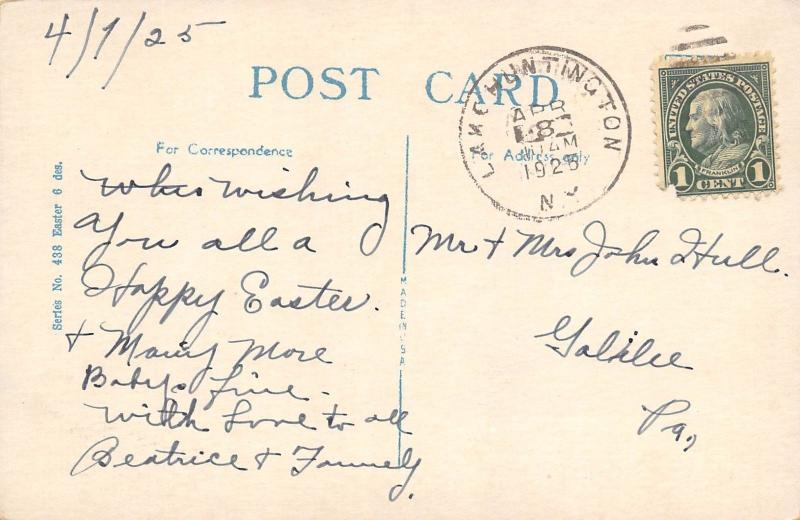 4/7/25
POST CARD
LAKE HUNTINGTON
APR
8
AM
1925
N.Y.
UNITED STATES POSTAGE
FRANKLIN
1 CENT 1
For Correspondence
For Address only
Series No. 438 Easter 6 des.
MADE IN USA
wishing
you all a
Happy Easter.
+ Many More
Babys fine.
With Love to all
Beatrice + Family.
Mr + Mrs John Hull.
Galilee
Pa.,